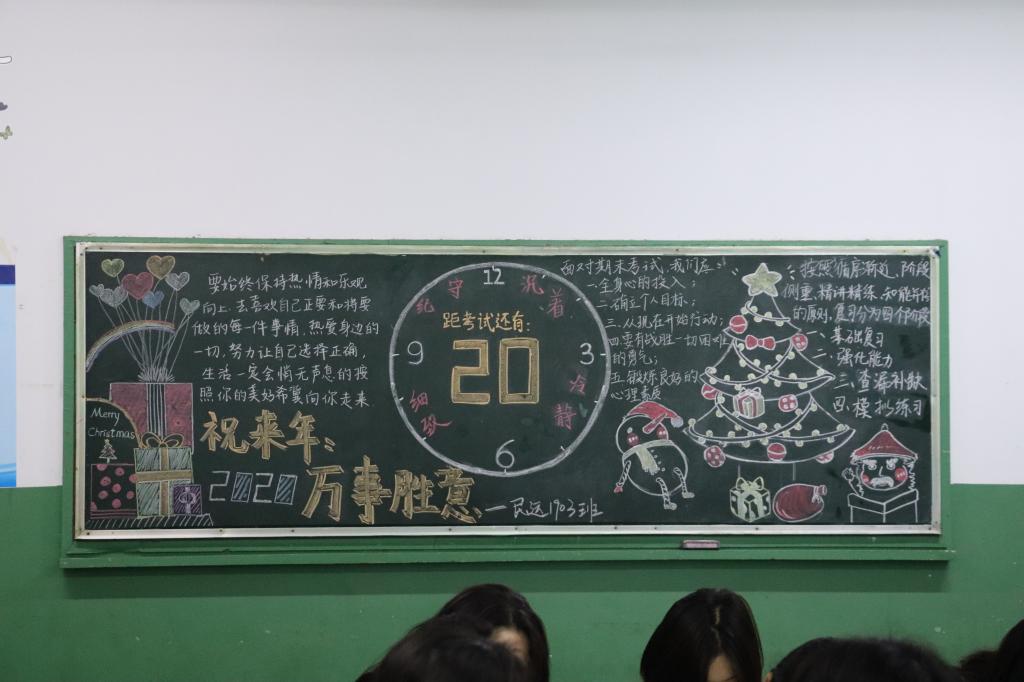 要始终保持热情和乐观
向上.去喜欢自己正要和将要
做的每一件事情,热爱身边的
一切,努力让自己选择正确,
生活一定会悄无声息的按
照你的美好希冀向你走来
Merry
Christmas
祝来年:
2020 万事胜意
—民运1903班
12
3
6
9
守纪
沉着
冷静
细致
距考试还有:
20
面对期末考试,我们应:
一.全身心的投入;
二.确立个人目标;
三.从现在开始行动;
四.要有战胜一切困难
的勇气;
五.锻炼良好的
心理素质
按照循序渐进、阶段
侧重、精讲精练、知能并行
的原则.复习分为四个阶段
一.基础复习
二.强化能力
三.查漏补缺
四.模拟练习